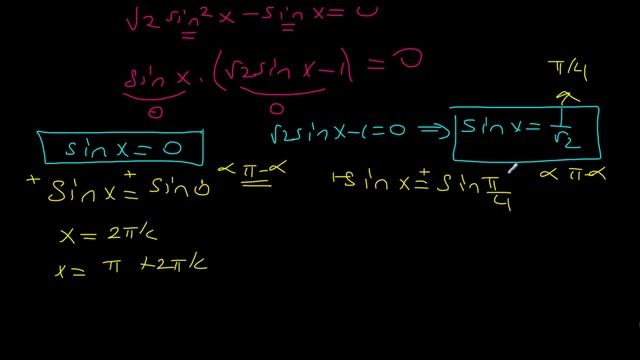 √2 sin² x - sin x = 0
sin x · (√2 sin x - 1) = 0
0 0
π/4
√2 sin x - 1 = 0 ⇒ sin x = 1/√2
sin x = 0
+ sin x = + sin 0 α π-α
+ sin x = + sin π/4 α π-α
x = 2πk
x = π + 2πk